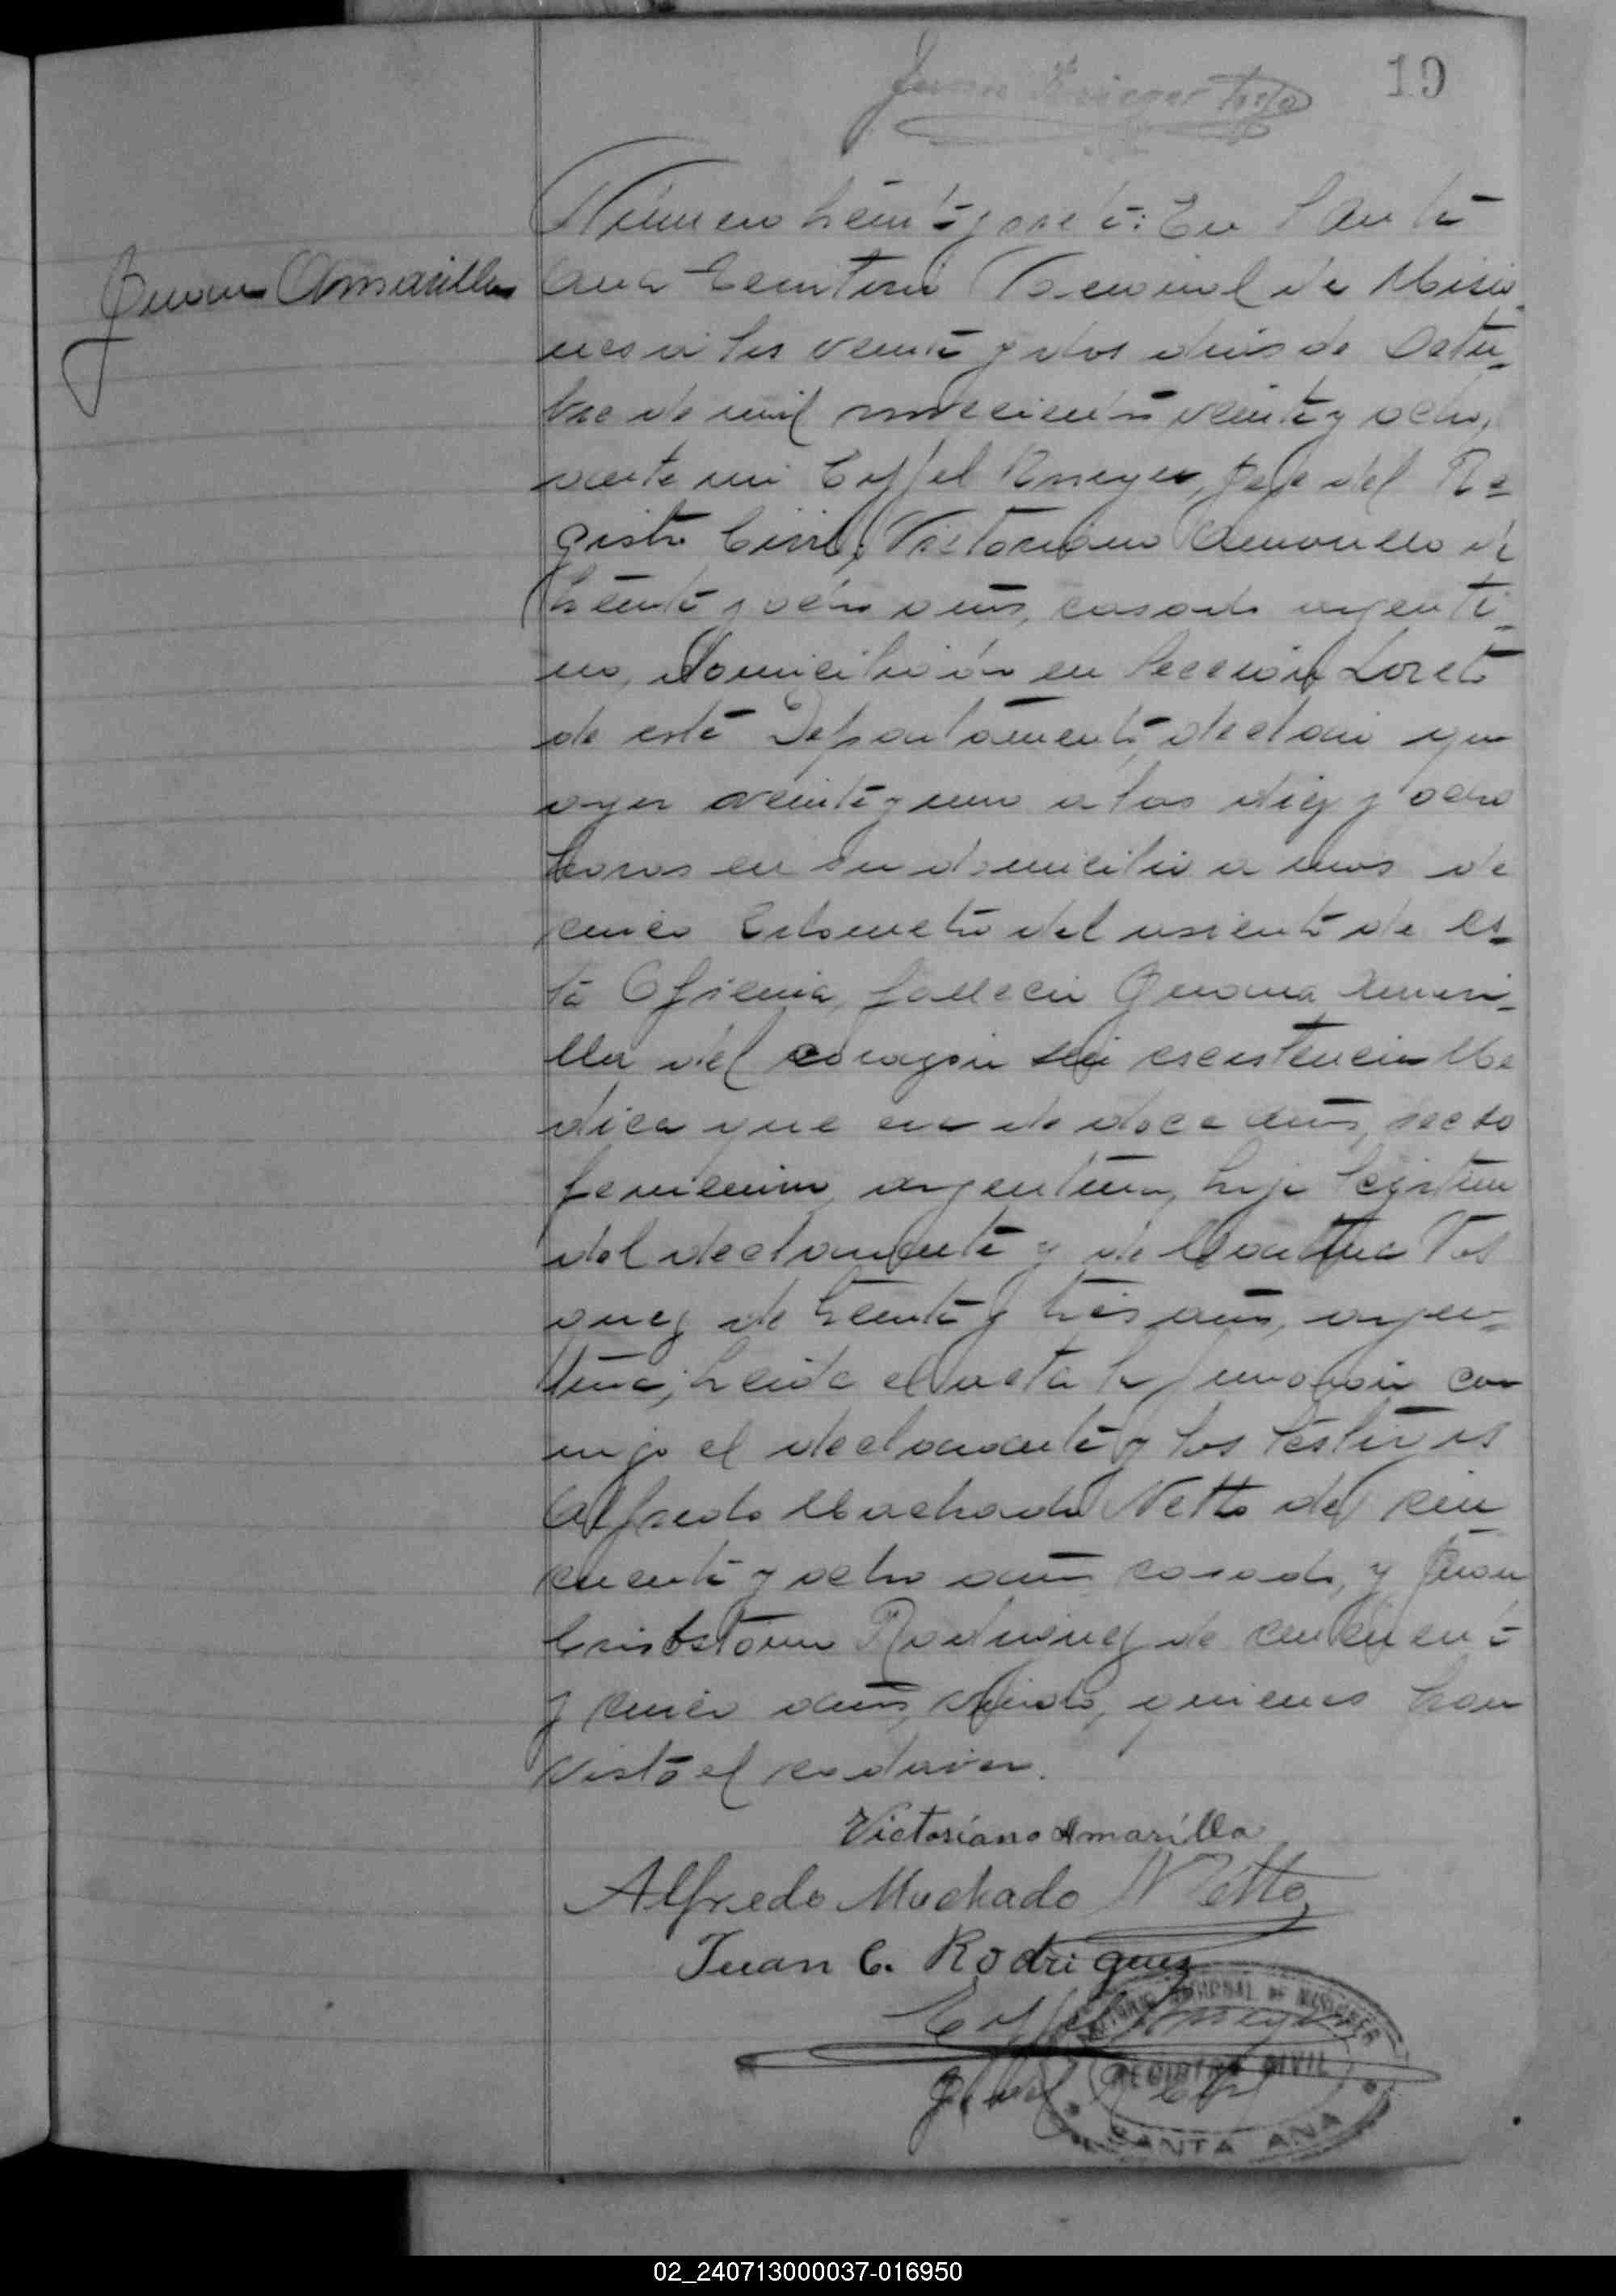 19
Juana Amarilla
Número treinta y siete: En Santa
Ana Territorio Nacional de Misio
nes a los veinte y dos dias de Octu
bre de mil novecientos veinte y ocho,
ante mi Eyffel Krieger, Jefe del Re
gistro Civil, Victoriano Amarilla de
treinta y ocho años, casado argenti
no, domiciliado en Sección Loreto
de este Departamento, declaró que
ayer veinte y uno a las diez y ocho
horas en su domicilio a unos de
cinco kilometro del asiento de es
ta Oficina, falleció Juana Amari
lla del corazon sin escistencia Me
dica que era de doce años, secso
femenino, argentina, hija legitima
del declarante y de Martina
de treinta y tres años, argen
tina; Leida el acta la firmaron con
migo el declarante y los testigos
Alfredo Machado Netto de cin
cuenta y ocho años casado, y Juan
Crisostomo Rodriguez de cincuenta
y cinco años, viudo, quienes han
visto el cadaver.
Victoriano Amarilla
Alfredo Machado Netto
Juan C. Rodriguez
Eyffel Krieger
TERRITORIO NACIONAL DE MISIONES
REGISTRO CIVIL
SANTA ANA
02_240713000037-016950